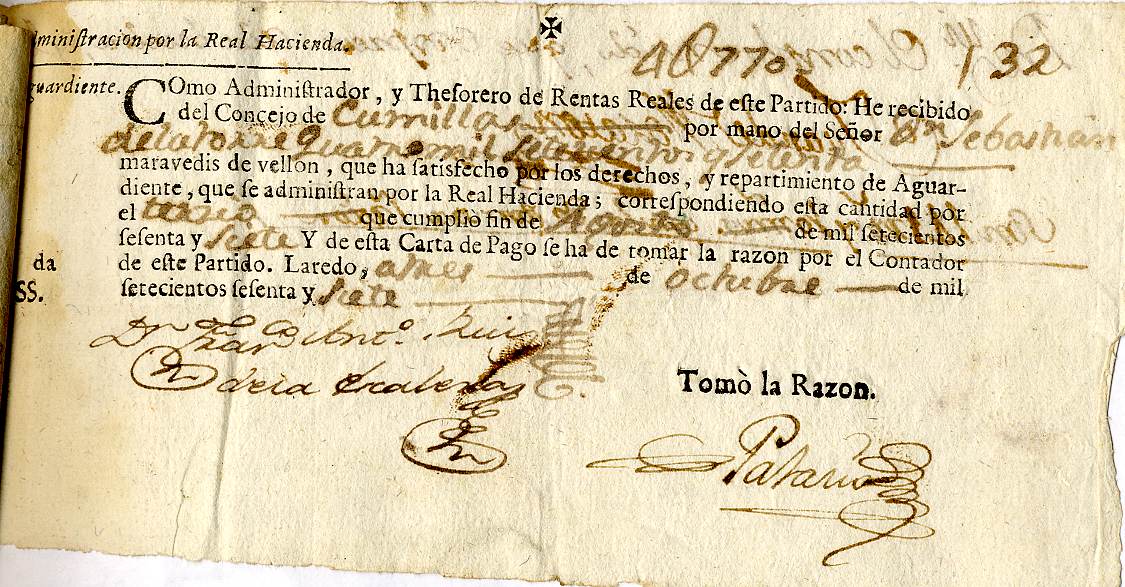 dministracion por la Real Hacienda.
4U770 132
guardiente.
COmo Administrador, y Thesorero de Rentas Reales de este Partido: He recibido
del Concejo de Cumillas por mano del Señor Dn Sebastian
de la torre Quatro mil setecientos y setenta
maravedis de vellon, que ha satisfecho por los derechos, y repartimiento de Aguar-
diente, que se administran por la Real Hacienda; correspondiendo esta cantidad por
el tercio que cumpliò fin de Agosto de mil setecientos
sesenta y siete Y de esta Carta de Pago se ha de tomar la razon por el Contador
da de este Partido. Laredo, a tres de octubre de mil
SS. setecientos sesenta y siete
Dn Franco Anto. Ruiz
de la Escalera
Tomò la Razon.